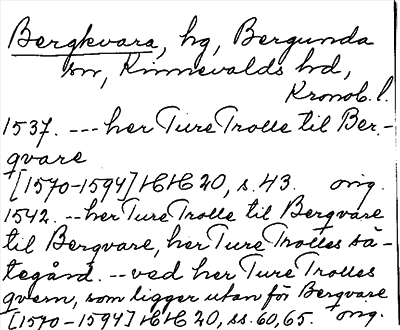 Bergkvara, hg, Bergunda
sn, Kinnevalds hd,
Kronob. l.
1537. --- her Ture Trolle til Ber-
qvare
[1570-1594] HH 20, s. 43. orig.
1542. -- her Ture Trolle til Bergvare
til Bergvare, her Ture Trolles sä-
tegård. -- ved her Ture Trolles
qvern, som ligger utan för Bergvare
[1570-1594] HH 20, ss. 60, 65. orig.